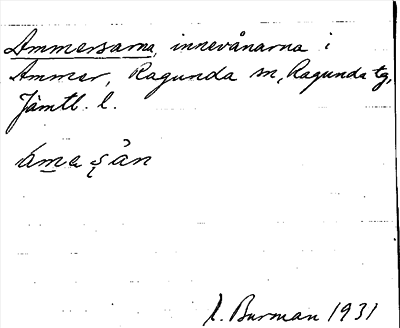 Ammersarna, innevånarna i
Ammer, Ragunda sn, Ragunda tg,
Jämtl. l.
L. Burman 1931